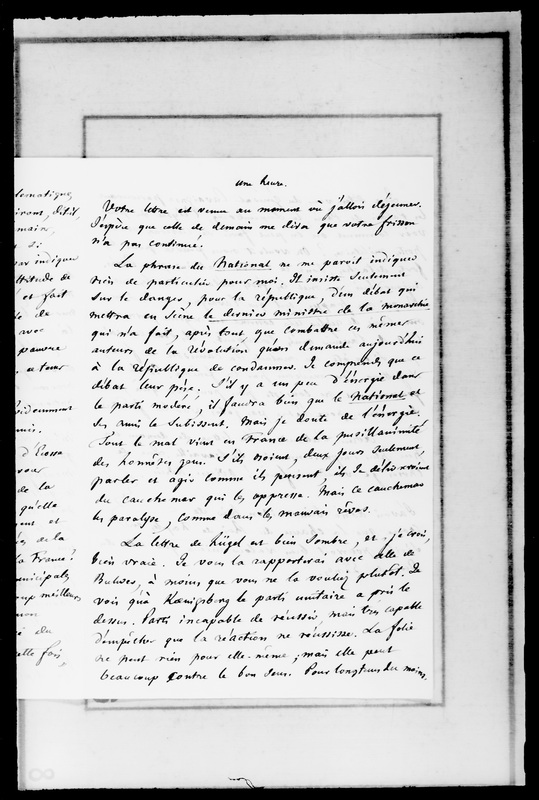 une heure.
Votre lettre est venue au moment où j'allois déjeuner.
J'espère que celle de demain me dira que votre frisson
n'a pas continué.
La phrase du National ne me paroit indiquer
rien de particulier pour moi. Il insiste seulement
sur le danger, pour la république, d'un débat qui
mettra en scène le dernier ministre de la monarchie
qui n'a fait, après tout que combattre ces mêmes
auteurs de la révolution qu'on demande aujourd'hui
à la république de condamner. Je comprends que ce
débat leur pèse. S'il y a un peu d'énergie dans
le parti modéré, il faudra bien que le National et
ses amis le subissent. Mais je doute de l'énergie.
Tout le mal vient en France de la pusillanimité
des honnêtes gens. S'ils osoient, deux jours seulement,
parler et agir comme ils pensent, ils se délivreroient
du cauchemar qui les oppresse. Mais ce cauchemar
les paralyse, comme dans les mauvais rêves.
La lettre de Hügel est bien sombre, et je crois,
bien vraie. Je vous la rapporterai avec celle de
Bulwer, à moins que vous ne la vouliez plutôt. Je
vois qu'à Kœnigsberg le parti unitaire a pris le
dessus. Parti incapable de réussir, mais très capable
d'empêcher que la réaction ne réussisse. La folie
ne peut rien pour elle-même ; mais elle peut
beaucoup contre le bon sens. Pour longtems du moins.
lomatique
iront, dit-il
main,
si
par indiquer
ttitude de
et fait
le de
avec
pauvre
auteur
videmment
d'Ecosse
pour
de la
qu'elle
ent et
de la
la France!
unicipales
up meilleurs
non
du
elle fois,